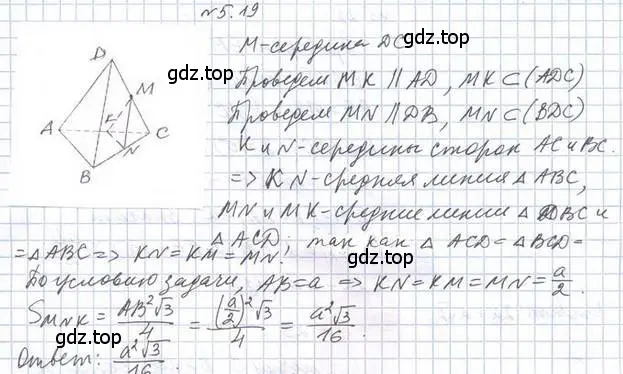 №5.19
M-середина DC
gdz.top
gdz.top
Проведем MK ∥ AD, MK ⊂ (ADC)
Проведем MN ∥ DB, MN ⊂ (BDC)
K и N-середины сторон AC и BC.
=> KN-средняя линия △ ABC,
MN и MK-средние линии △ DBC и
△ ACD; так как △ ACD = △ BCD =
= △ ABC => KN = KM = MN.
По условию задачи, AB = a => KN = KM = MN = a/2.
S_MNK = AB²√3/4 = (a/2)²√3/4 = a²√3/16.
Ответ: a²√3/16.
D
M
A
K
C
N
B
gdz.top
gdz.top
gdz.top